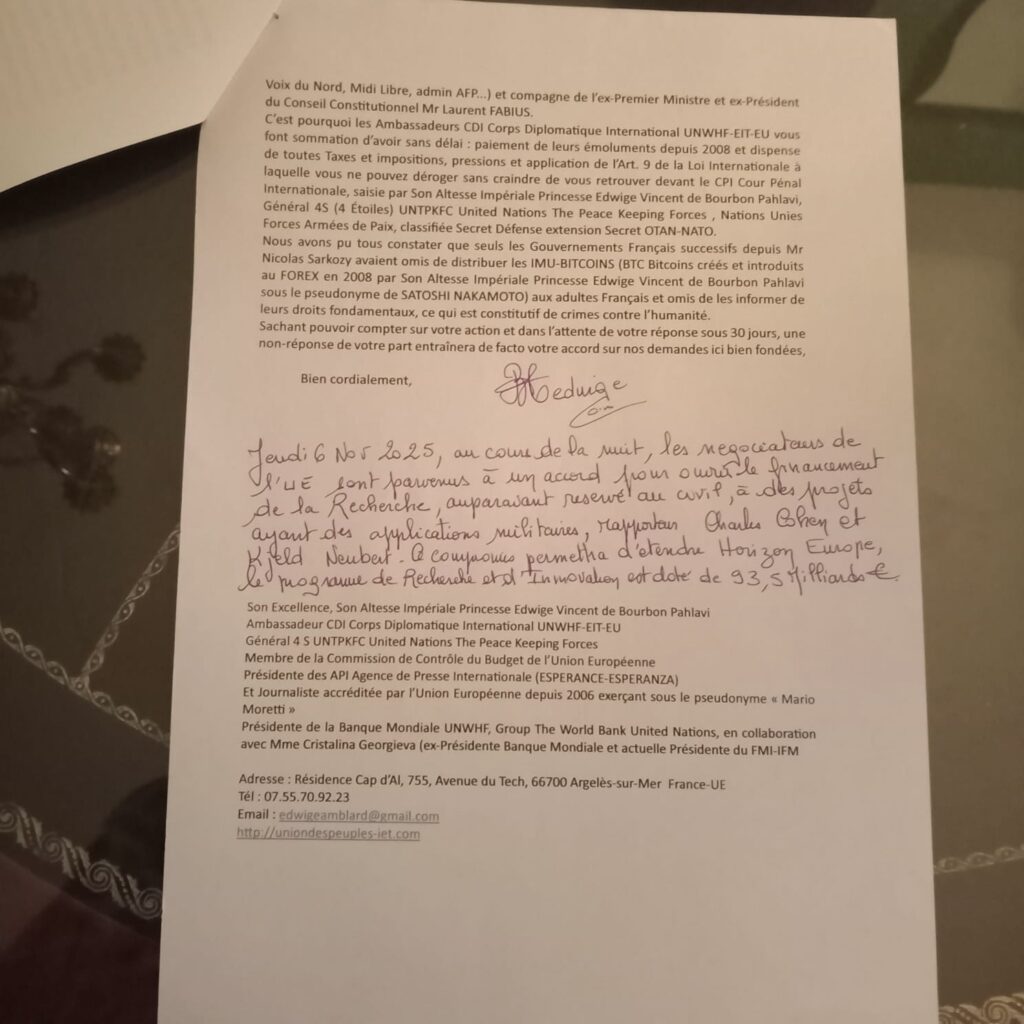 Voix du Nord, Midi Libre, admin AFP...) et compagne de l'ex-Premier Ministre et ex-Président
du Conseil Constitutionnel Mr Laurent FABIUS.
C'est pourquoi les Ambassadeurs CDI Corps Diplomatique International UNWHF-EIT-EU vous
font sommation d'avoir sans délai : paiement de leurs émoluments depuis 2008 et dispense
de toutes Taxes et impositions, pressions et application de l'Art. 9 de la Loi Internationale à
laquelle vous ne pouvez déroger sans craindre de vous retrouver devant le CPI Cour Pénal
Internationale, saisie par Son Altesse Impériale Princesse Edwige Vincent de Bourbon Pahlavi,
Général 4S (4 Étoiles) UNTPKFC United Nations The Peace Keeping Forces , Nations Unies
Forces Armées de Paix, classifiée Secret Défense extension Secret OTAN-NATO.
Nous avons pu tous constater que seuls les Gouvernements Français successifs depuis Mr
Nicolas Sarkozy avaient omis de distribuer les IMU-BITCOINS (BTC Bitcoins créés et introduits
au FOREX en 2008 par Son Altesse Impériale Princesse Edwige Vincent de Bourbon Pahlavi
sous le pseudonyme de SATOSHI NAKAMOTO) aux adultes Français et omis de les informer de
leurs droits fondamentaux, ce qui est constitutif de crimes contre l'humanité.
Sachant pouvoir compter sur votre action et dans l'attente de votre réponse sous 30 jours, une
non-réponse de votre part entraînera de facto votre accord sur nos demandes ici bien fondées,
Bien cordialement,
Jeudi 6 Nov 2025, au cours de la nuit, les negociateurs de
l'UE sont parvenus à un accord pour ouvrir le financement
de la Recherche, auparavant reservé au civil, à des projets
ayant des applications militaires, rapporteurs Charles Cohen et
Kjeld Neubert. Ce compromis permettra d'etendre Horizon Europe,
le programme de Recherche et d'Innovation est doté de 93,5 Milliards €.
Son Excellence, Son Altesse Impériale Princesse Edwige Vincent de Bourbon Pahlavi
Ambassadeur CDI Corps Diplomatique International UNWHF-EIT-EU
Général 4 S UNTPKFC United Nations The Peace Keeping Forces
Membre de la Commission de Contrôle du Budget de l'Union Européenne
Présidente des API Agence de Presse Internationale (ESPERANCE-ESPERANZA)
Et Journaliste accréditée par l'Union Européenne depuis 2006 exerçant sous le pseudonyme « Mario
Moretti »
Présidente de la Banque Mondiale UNWHF, Group The World Bank United Nations, en collaboration
avec Mme Cristalina Georgieva (ex-Présidente Banque Mondiale et actuelle Présidente du FMI-IFM
Adresse : Résidence Cap d'Al, 755, Avenue du Tech, 66700 Argelès-sur-Mer France-UE
Tél : 07.55.70.92.23
Email : edwigeamblard@gmail.com
http://uniondespeuples-iet.com